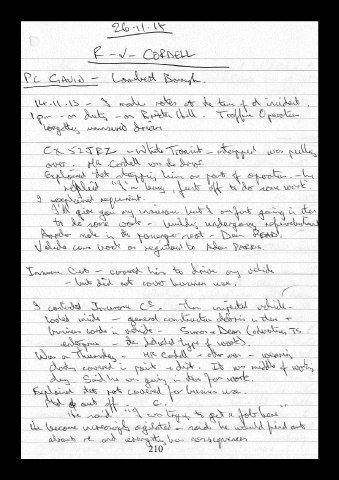 26-11-14
R -v- CORDELL
PC GAVIN - Lambeth Borough.
14-11-13 - I made notes at the time of incident.
1pm - on duty - on Brixton Hill. Traffic Operation
targetting uninsured drivers
CX52JRZ - White Transit - stopped was pulled
over. MR Cordell was the driver.
Explained that stopping him as part of operation - he
replied "I'm busy, just off to do some work."
I explained requirement.
I'll give you my insurance but I am just going in there
to do some work - building, undergoing refurbishment
Another male in the passenger seat - Dean
Vehicle came back as registered to
Insurance Cert - covered him to drive any vehicle
- but did not cover business use.
I contacted Insurance C°. Then inspected vehicle -
looked inside - general construction debris in there +
business cards in vehicle - Simon + Dean
- the detailed type of work).
Was a Thursday - MR Cordell - wearing
clothes covered in paint + dirt. It was middle of working
day. Said he was going in there for work.
Explained that not covered for business use.
he said "if I was trying to get a job here
He became increasingly agitated - said he would find out
about me and everything has consequences
210